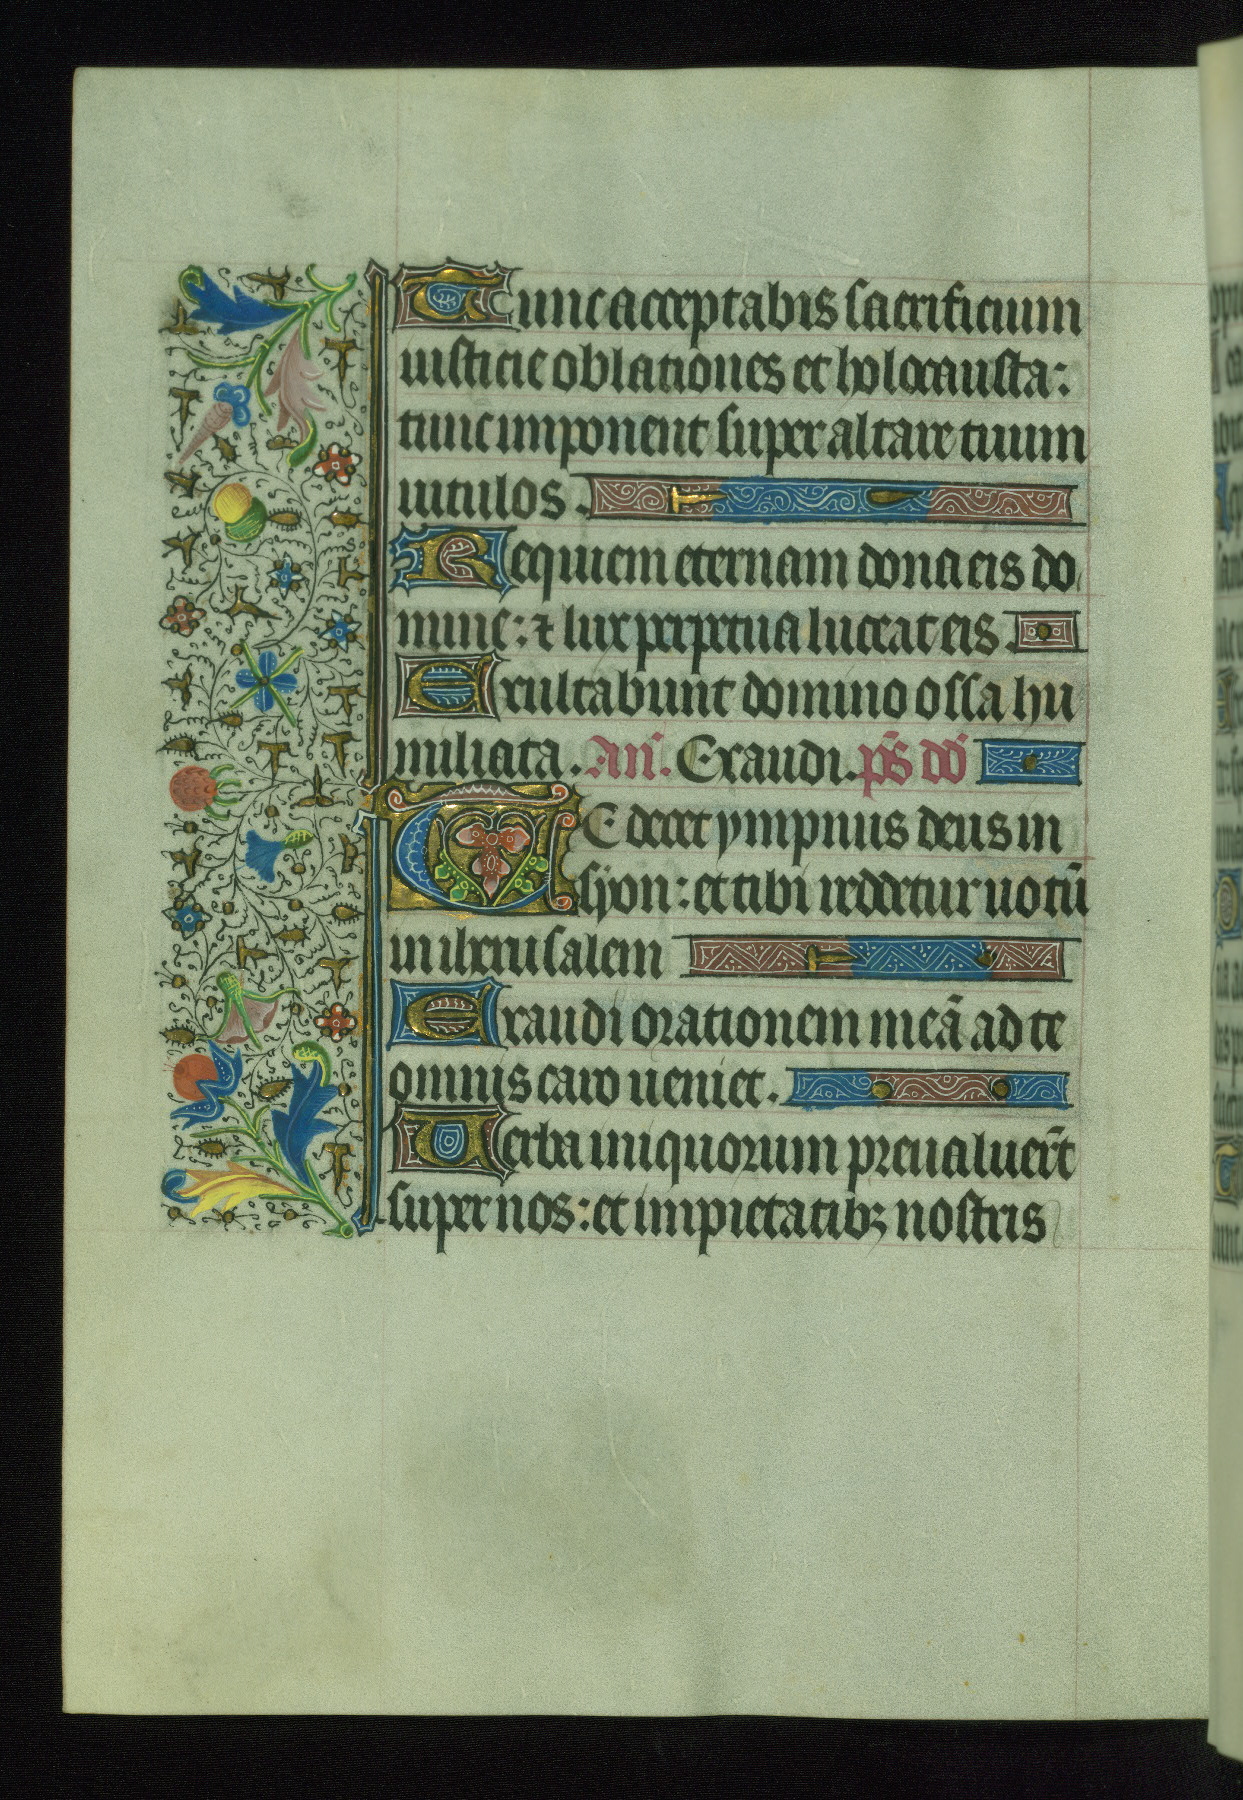 Tunc acceptabis sacrificium
iusticie oblationes et holocausta:
tunc imponent super altare tuum
uitulos.
Requiem eternam dona eis do
mine: ⁊ lux perpetua luceat eis.
Exultabunt domino ossa hu
miliata. An͂. Exaudi. ps̄ dd̄
TE decet ympnus deus in
syon: et tibi reddetur uotū
in iherusalem
Exaudi orationem meā ad te
omnis caro ueniet.
Uerba iniquorum preualuer̄t
super nos: et impietatibꝫ nostris